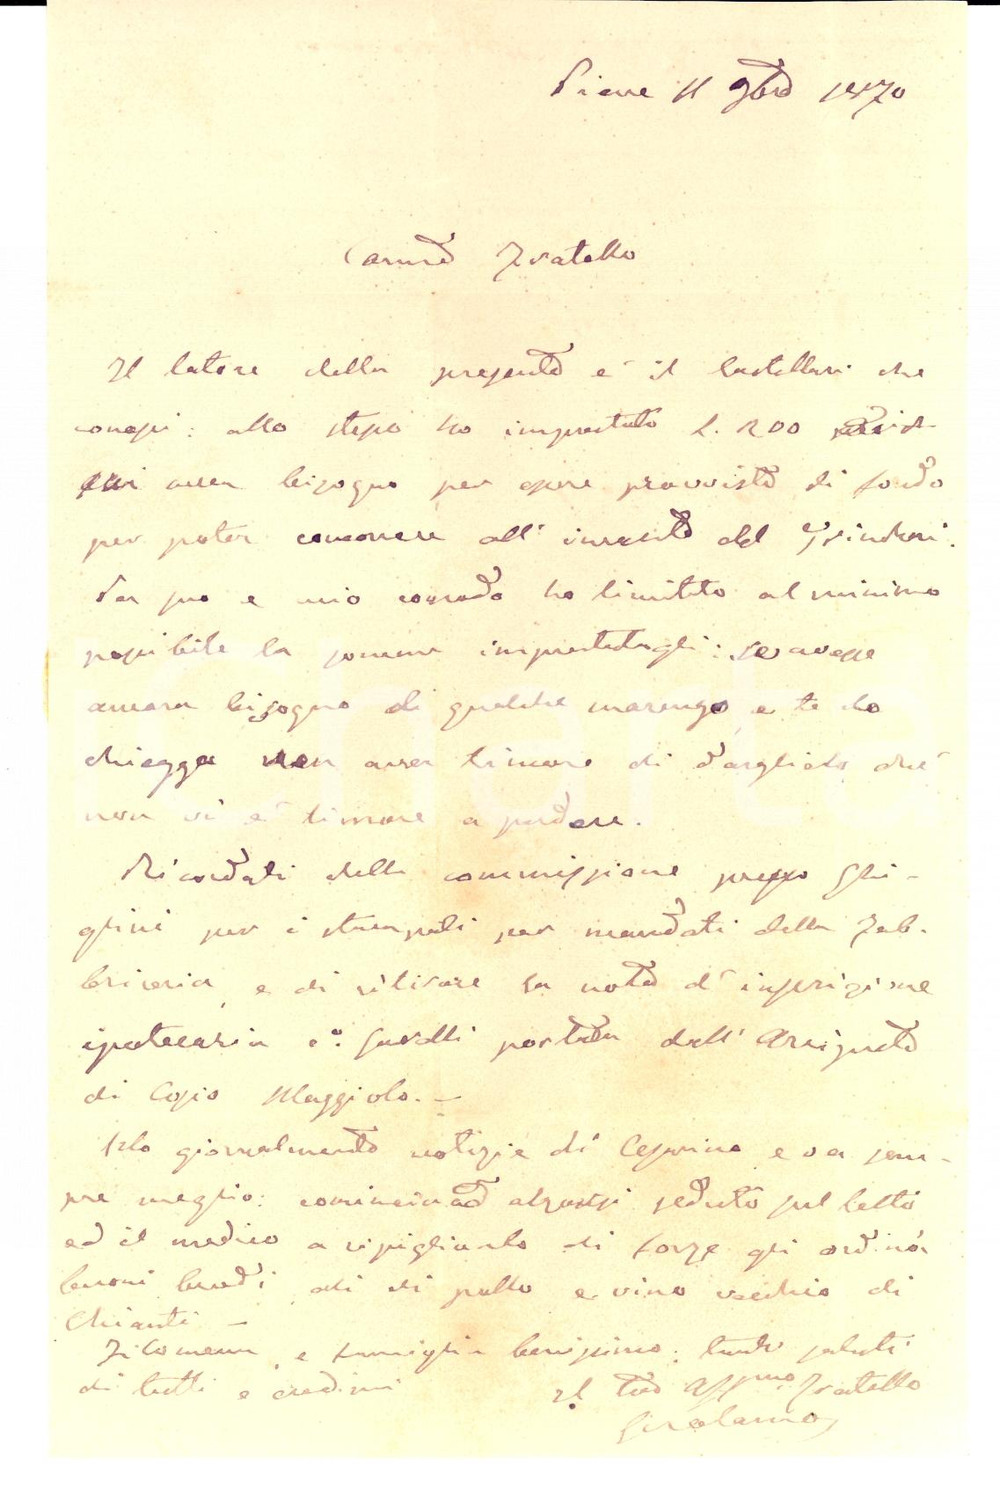 Pieve 11 9bre 1870
Carmo Fratello
Il latore della presente è il Castellari che
conosci: allo stesso ho imprestato L. 200
aver bisogno per essere provvisto di fondo
per poter concorrere all' incanto del
Per suo e mio comodo ho limitato al minimo
possibile la somma imprestatagli: se avesse
ancora bisogno di qualche marengo e te lo
chiegga non aver timore di darglielo chè
non vi è timore a perdere.
Ricordati della commissione presso Ghi-
glini per i stampati per mandati della Fab-
briceria, e di ritirare la nota d' inscrizione
ipotecaria co: portata dall'
di Casio Maggiolo. -
Ho giornalmente notizie di Cesarino e va sem-
pre meglio: comincia ad alzarsi seduto sul letto
ed il medico a ripigliarlo di forze gli ordinò
buoni brodi, ali di pollo e vino vecchio di
Chianti -
Filomena e famiglia benissimo: tanti saluti
di tutti e credimi
Il tuo Affmo Fratello
Girolamo